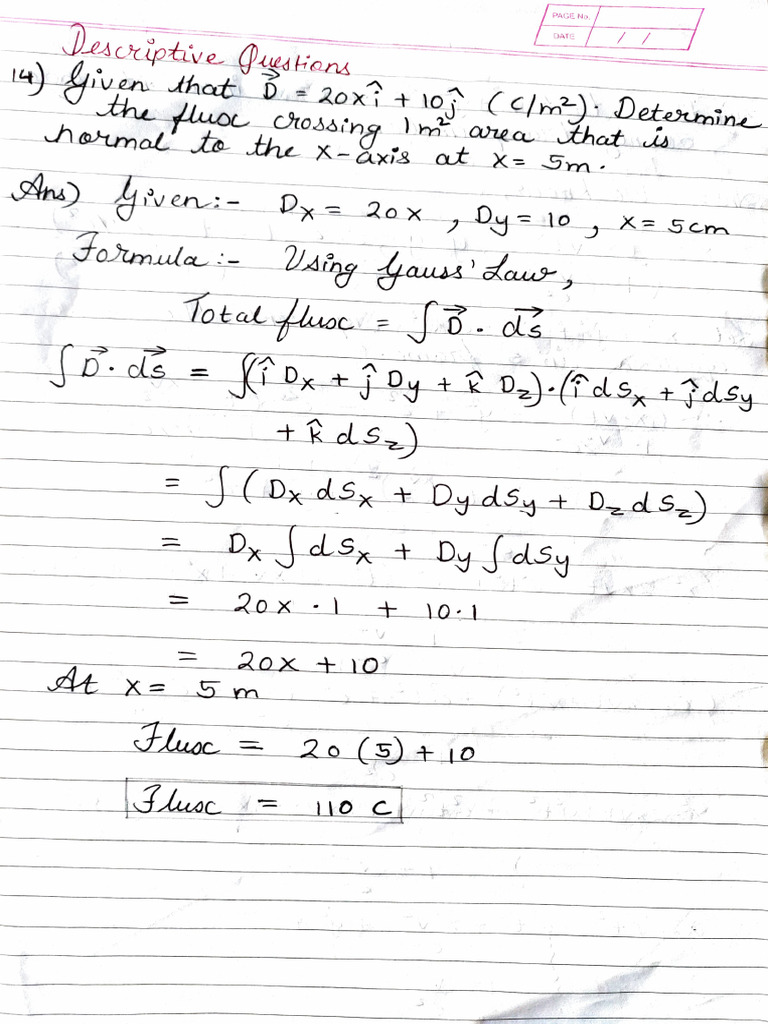 PAGE No.
DATE / /
Descriptive Questions
14) Given that D⃗ = 20xî + 10ĵ (C/m²). Determine
the flux crossing 1m² area that is
normal to the x-axis at x = 5m.
Ans) Given:- Dx = 20x , Dy = 10 , x = 5cm
Formula:- Using Gauss' Law,
Total flux = ∫D⃗ · ds⃗
∫D⃗ · ds⃗ = ∫(î Dx + ĵ Dy + k̂ Dz)·(î dSx + ĵ dSy
+ k̂ dSz)
= ∫(Dx dSx + Dy dSy + Dz dSz)
= Dx ∫dSx + Dy ∫dSy
= 20x · 1 + 10·1
= 20x + 10
At x = 5 m
Flux = 20 (5) + 10
Flux = 110 C